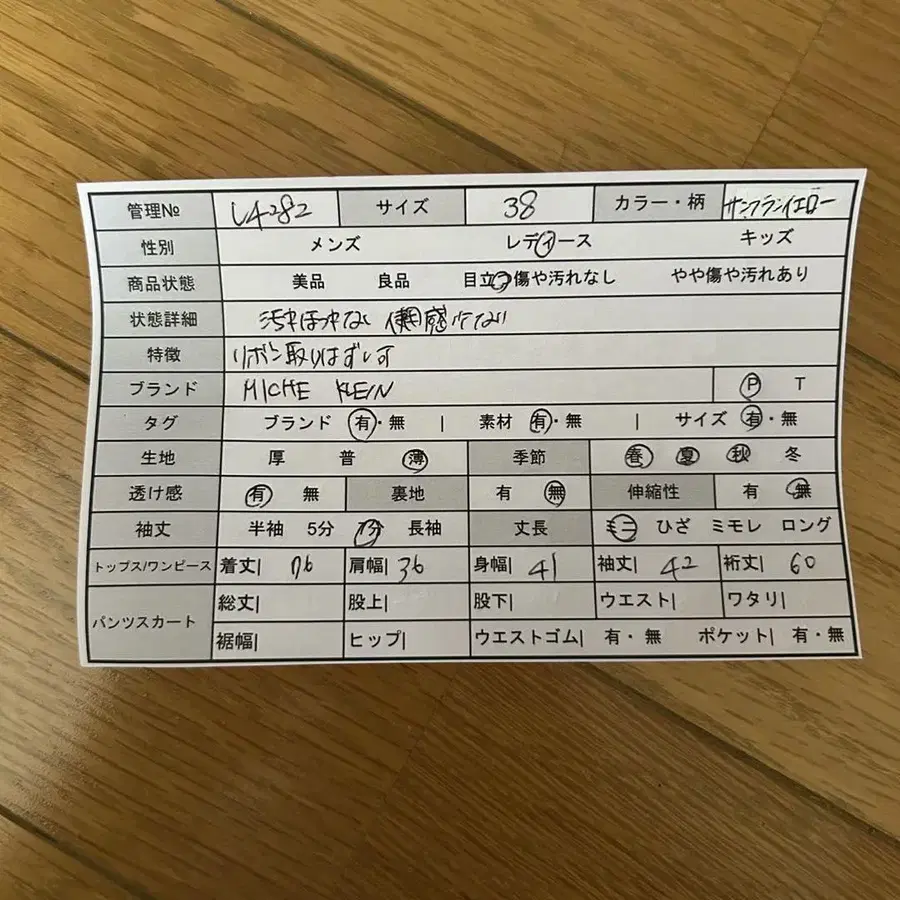 管理№ L4282 サイズ 38 カラー・柄
性別 メンズ レディース キッズ
商品状態 美品 良品 目立つ傷や汚れなし やや傷や汚れあり
状態詳細
特徴 リボン取りはずし可
ブランド MICHE KLEIN P T
タグ ブランド 有・無 | 素材 有・無 | サイズ 有・無
生地 厚 普 薄 季節 春 夏 秋 冬
透け感 有 無 裏地 有 無 伸縮性 有 無
袖丈 半袖 5分 7分 長袖 丈長 ミニ ひざ ミモレ ロング
トップス/ワンピース 着丈| 76 肩幅| 36 身幅| 41 袖丈| 42 裄丈| 60
パンツスカート 総丈| 股上| 股下| ウエスト| ワタリ|
裾幅| ヒップ| ウエストゴム| 有・無 ポケット| 有・無